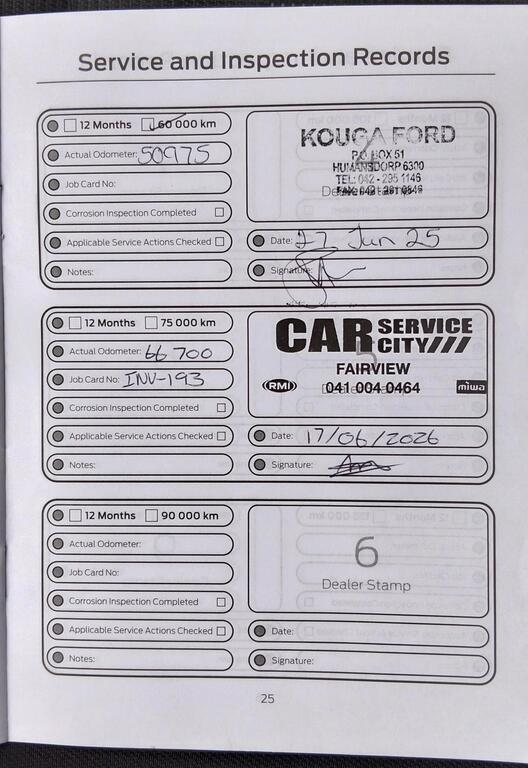 Service and Inspection Records
12 Months 60 000 km
Actual Odometer: 50975
Job Card No:
Corrosion Inspection Completed
Applicable Service Actions Checked
Notes:
KOUGA FORD
P.O. BOX 51
HUMANSDORP 6300
TEL: 042 - 295 1146
Date: 27 Jun 25
Signature:
12 Months 75 000 km
Actual Odometer: 66 700
Job Card No: INV-193
Corrosion Inspection Completed
Applicable Service Actions Checked
Notes:
CAR SERVICE CITY///
FAIRVIEW
RMI 041 004 0464 miwa
Date: 17/06/2026
Signature:
12 Months 90 000 km
Actual Odometer:
Job Card No:
Corrosion Inspection Completed
Applicable Service Actions Checked
Notes:
6
Dealer Stamp
Date:
Signature:
25